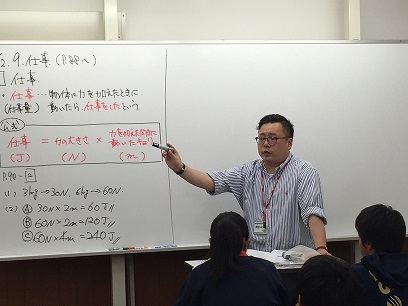 2.9. 仕事 (P.88〜)
仕事
・仕事…物体に力を加えたときに
(仕事量) 動いたら仕事をしたという
公式
仕事 = 力の大きさ × 力を加えた向きに動いたキョリ
(J) (N) (m)
P.90-2
(1) 3kg→30N, 6kg→60N
(2) Ⓐ 30N×2m=60J
Ⓑ 60N×2m=120J
Ⓒ 60N×4m=240J